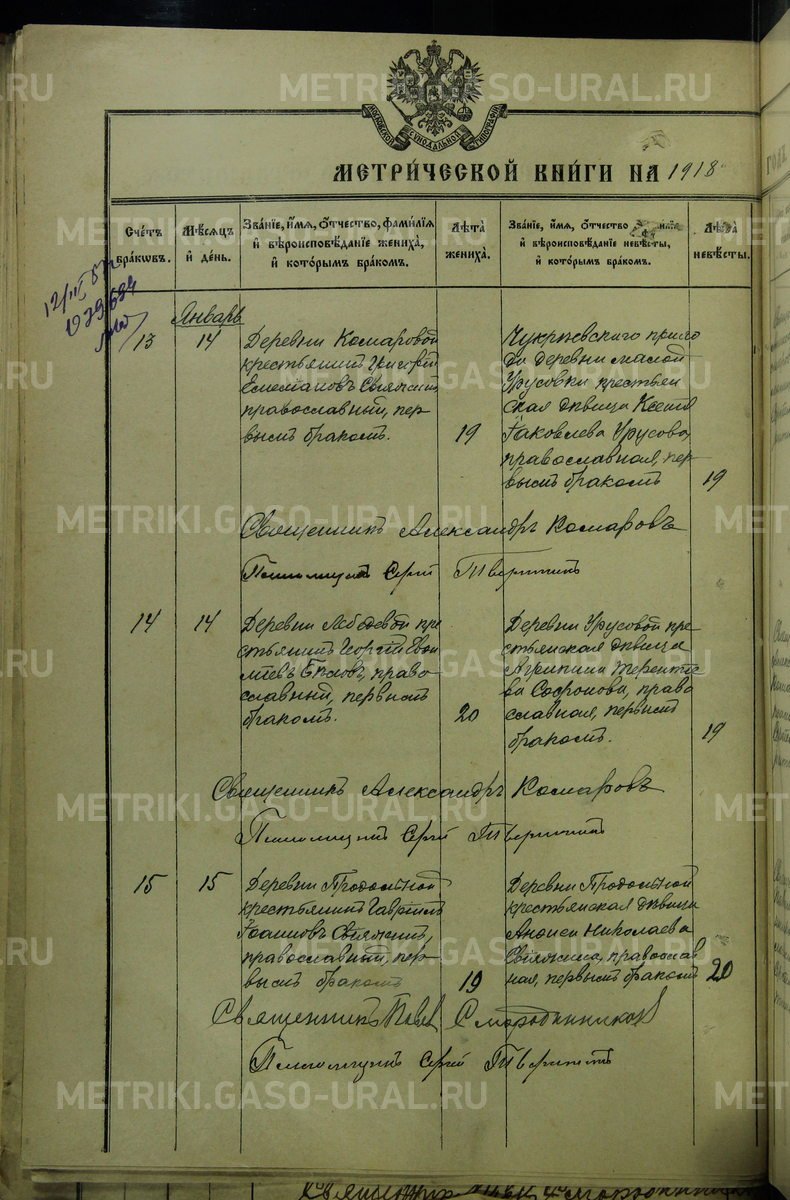 МОСКОВСКОЙ СѴНОДАЛЬНОЙ ТИПОГРАФІИ
МЕТРИ́ЧЕСКОЙ КНИ́ГИ НА 1918
Сче́тъ бра́кωвъ.
Мѣ́сѧцъ и҆ де́нь.
Зва́нїе, и҆́мѧ, ѻ҆́тчество, фамѝлїѧ и҆ вѣроисповѣ́данїе жениха̀, и҆ кото́рымъ бра́комъ.
Лѣ́та жениха̀.
Зва́нїе, и҆́мѧ, ѻ҆́тчество и҆ вѣроисповѣ́данїе невѣ́сты, и҆ кото́рымъ бра́комъ.
Лѣ́та невѣ́сты.
ГОДЪ
Январь
13
14
Деревни Комаровой
крестьянинъ Григорій
Емельяновъ Свяжинъ
православный, пер-
вымъ бракомъ.
19
Чукреевского прихо
да деревни малой
Урусовки крестьян
ская дѣвица Ксенія
Яковлева Урусова
православная, пер-
вымъ бракомъ
19
Священникъ Александръ Комаровъ
Псаломщикъ Сергій
14
14
Деревни Лебедевой кре
стьянинъ Георгій
православный, первымъ
бракомъ.
20
Деревни Урусовой кре-
стьянская дѣвица
Агрипина Терентіе
ва Софронова, право
славная, первымъ
бракомъ.
19
Священникъ Александръ Комаровъ
Псаломщикъ Сергій
15
15
Деревни Продольной
крестьянинъ Гавріилъ
Іоанновъ Свяжинъ,
православный, пер-
вымъ бракомъ
19
Деревни Продольной
крестьянская дѣвица
Анфиса Николаева
Свяжина, православ
ная, первымъ бракомъ
20
Священникъ Павелъ Смородинниковъ
Псаломщикъ Сергій
METRIKI.GASO-URAL.RU